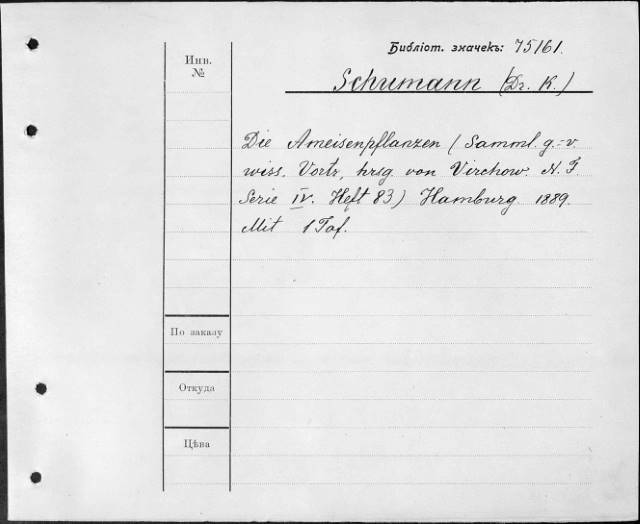 Библіот. значекъ: 75161.
Инв.
№
Schumann (Dr. K.)
Die Ameisenpflanzen (Samml. g.-v.
wiss. Vortr, hrsg von Virchow. N. F.
Serie IV. Heft 83) Hamburg. 1889.
Mit 1 Taf.
По заказу
Откуда
Цѣна